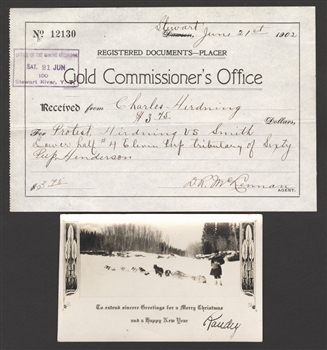 Nº 12130
Stewart, June 21st 1902
REGISTERED DOCUMENTS—PLACER
OFFICE OF THE MINING RECORDER
SAT. 21 JUN
190
Stewart River, Y.T.
Gold Commissioner's Office
Received from Charles Hirdning
$3.75 Dollars,
For Protest Hirdning vs Smith
Lower half #4 Eleven Pup tributary of Sixty
Pup Henderson
$3.75
D.R. McKinnan
AGENT.
To extend sincere Greetings for a Merry Christmas
and a Happy New Year